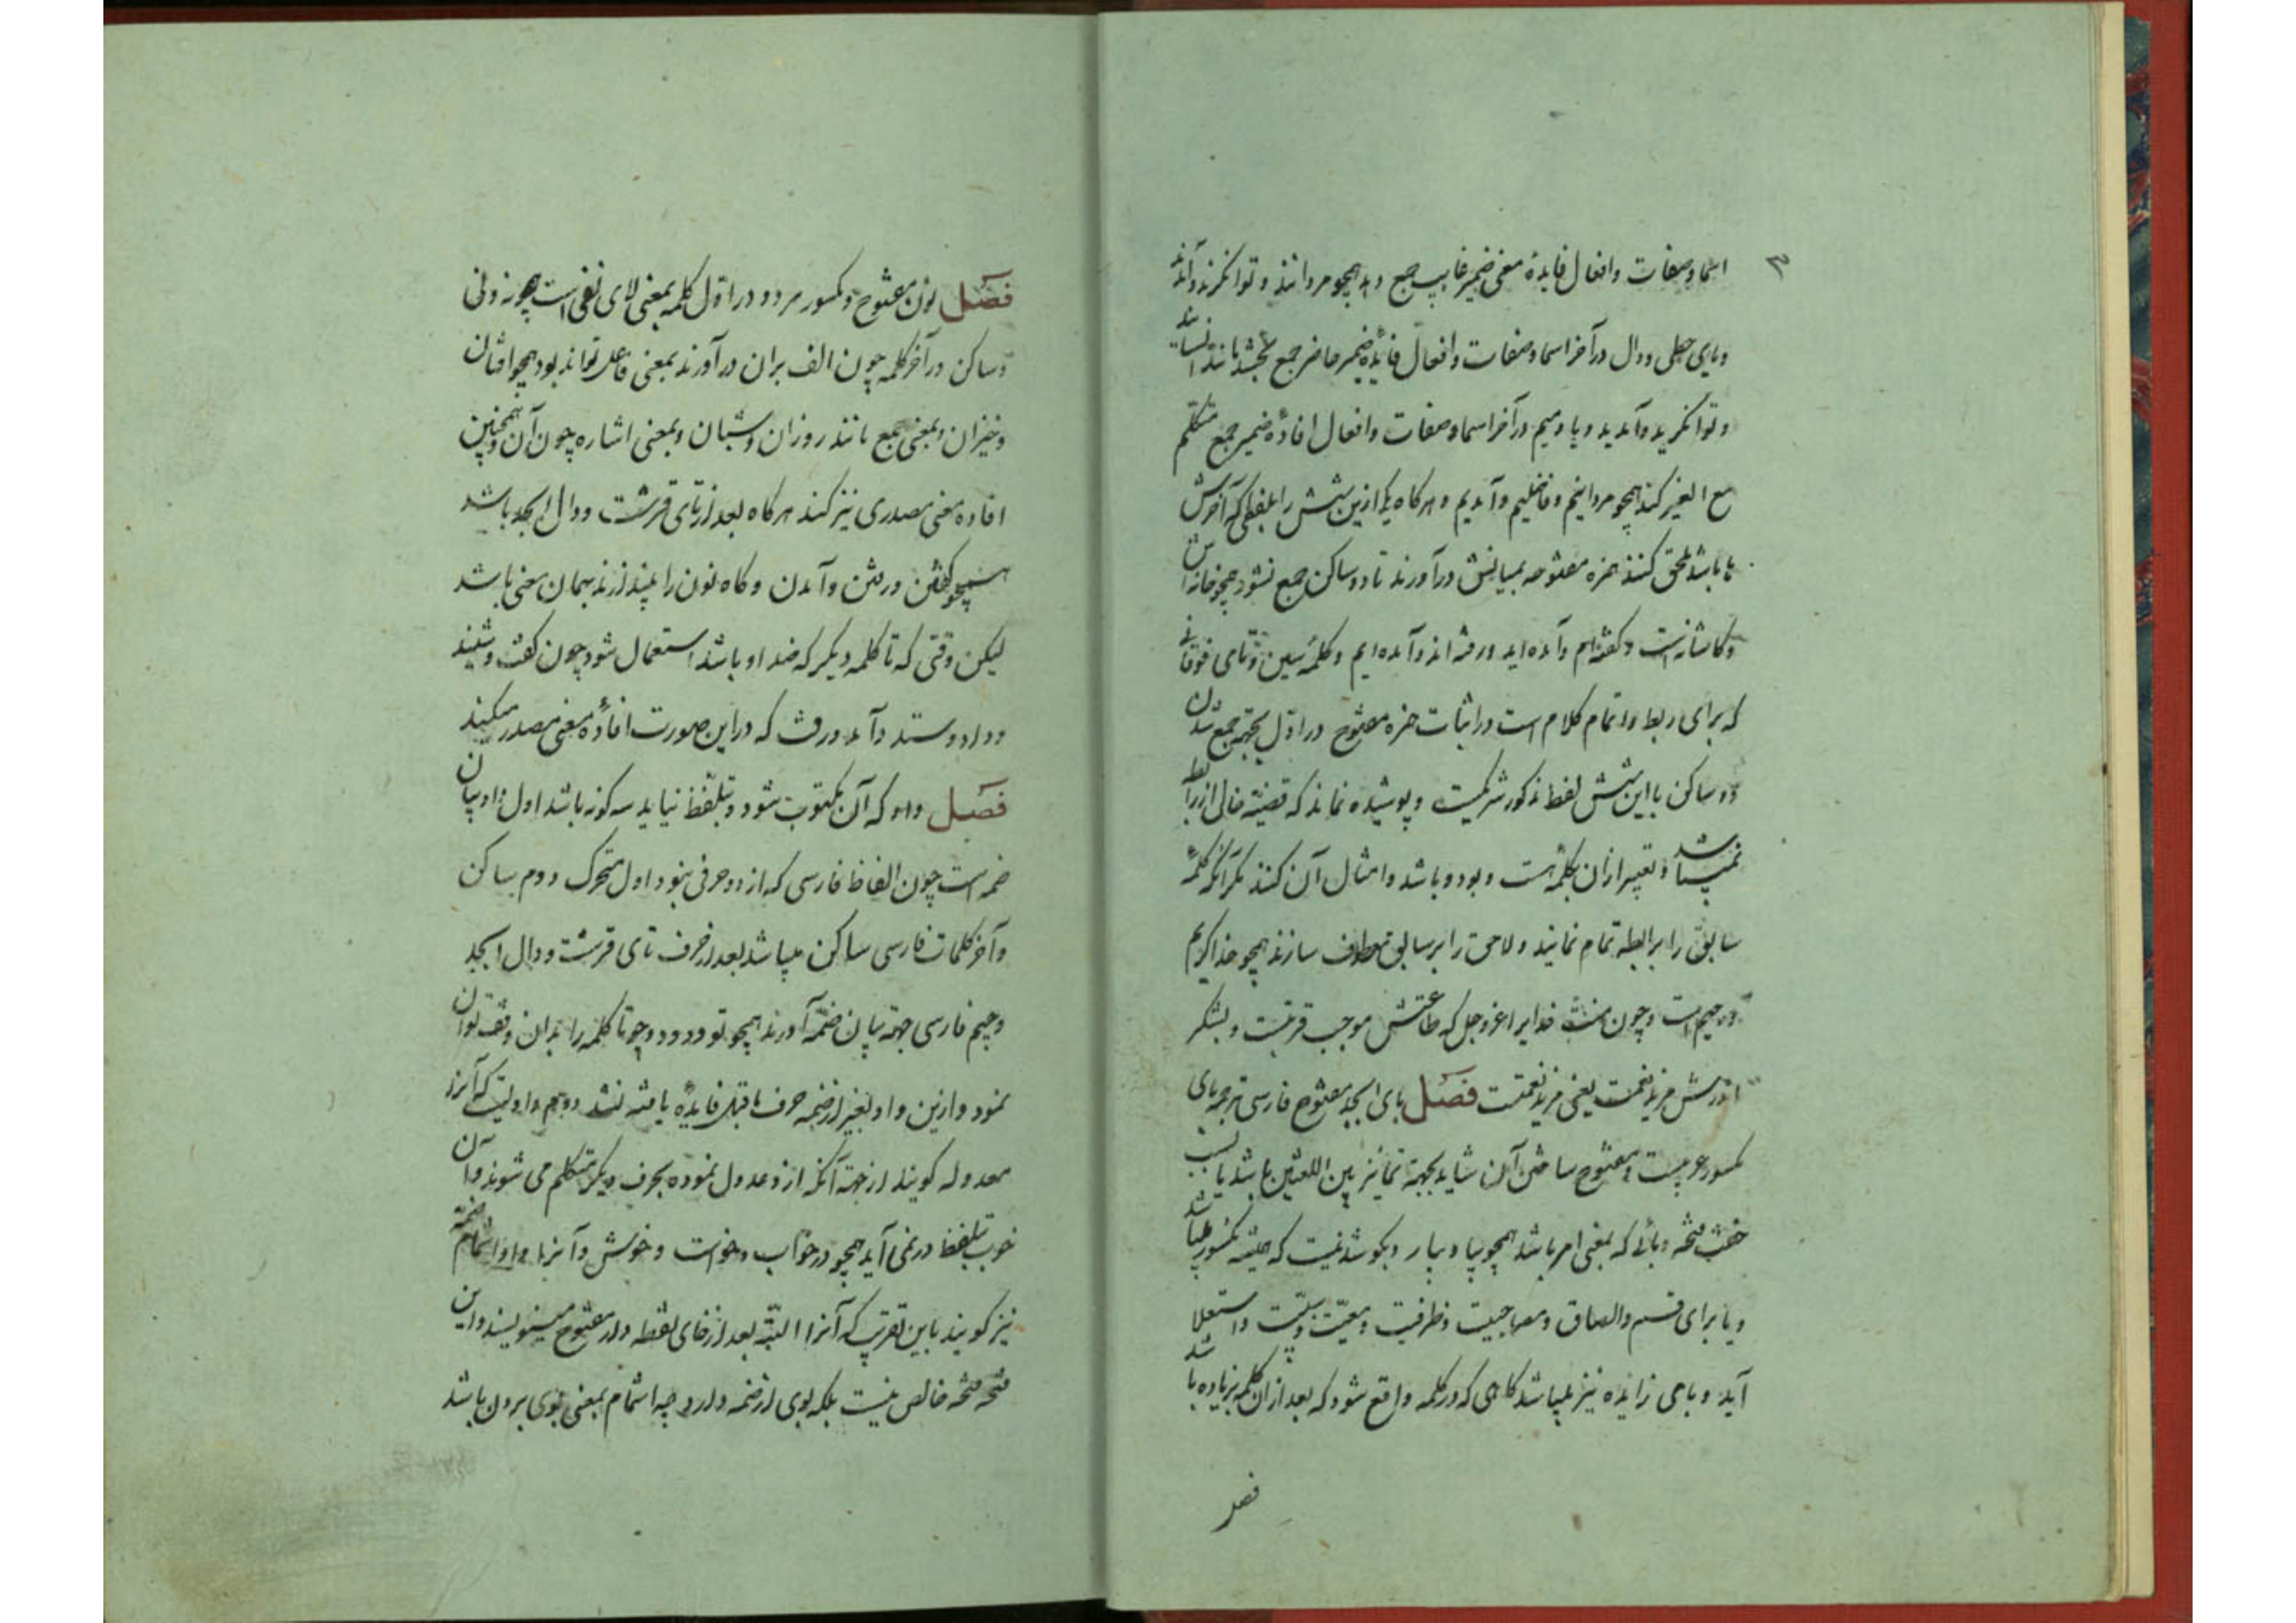 ۳
اسما و صفات و افعال فایدهٔ معنی ضمیر غایب جمع دهد همچو مردانند و توانکرند و آمدند
و یای حطی و دال در آخر اسما و صفات و افعال فایدهٔ ضمیر حاضر جمع بخشد مانند انسانید
و توانکرید و آمدید و یا و میم در آخر اسما و صفات و افعال افادهٔ ضمیر جمع متکلم
مع الغیر کند همچو مردانیم و فاضلیم و آمدیم و هرکاه یکی ازین شش را بلفظی که آخرش
ها باشد ملحق کنند همزه مفتوحه بمیانش درآورند تا دو ساکن جمع نشود همچو خانه اش
و کاشانه است و کفته ام و آمده اید و رفته اند و آمده ایم و کلمهٔ سین و تای فوقانی
که برای ربط و اتمام کلام است در اثبات همزه مفتوح در اول بجهة جمع شدن
دو ساکن با این شش لفظ مذکور شریکست و پوشیده نماند که قضیه خالی از رابطه
نمیباشد و تعبیر ازان بکلمهٔ است و بود و باشد و امثال آن کنند مکر آنکه کلمهٔ
سابق را برابطه تمام نمایند و لاحق را بر سابق معطوف سازند همچو خدا کریم
و رحیم است و چون منت خدایرا عز و جل که طاعتش موجب قربتست و بشکر
اندرش مزید نعمت یعنی مزید نعمتست فصل بای ابجد مفتوح فارسی ترجمه بای
مکسور عربیست و مفتوح ساختن آن شاید بجهة تمایز بین اللغتین باشد یا بسبب
خفت فتحه و بائی که بمعنی امر باشد همچو بیا و بیار و بکو شد نیست که همیشه مکسور میباشد
و با برای قسم و الصاق و مصاحبت و ظرفیت و معیت و سببیت و استعلا
آید و بای زایده نیز میباشد کاهی که در کلمه واقع شود که بعد ازان کلمه بر یا در باشد
فصل
فصل نون مفتوح و مکسور هر دو در اول کلمه بمعنی لای نفی است همچو نه و نی
و ساکن در آخر کلمه چون الف بران درآورند بمعنی فاعل تواند بود همچو افتان
و خیزان و بمعنی جمع مانند روزان و شبان و بمعنی اشاره چون آن و همچنین
افاده معنی مصدری نیز کند هرکاه بعد از تای قرشت و دال ابجد باشد
همچو کفتن و رفتن و آمدن و کاه نون را بیندازند بهمان معنی باشد
لیکن وقتی که تا کلمه دیکر که ضد او باشد استعمال شود چون کفت و شنید
و داد و ستد و آمد و رفت که در این صورت افادهٔ معنی مصدر میکند
فصل واو که آن مکتوب شود و بتلفظ نیاید سه کونه باشد اول واو بیان
ضمه است چون الفاظ فارسی که از دو حرفی بنود اول متحرک و دوم ساکن
و آخر کلمات فارسی ساکن میباشد بعد از حرف تای قرشت و دال ابجد
و جیم فارسی جهة بیان ضمه آورند همچو تو و دو و چو تا کلمه را بدان وقف توان
نمود و ازین واو بغیر از ضمه حرف ماقبل فایدهٔ یافته نشد دویم واویست که آنرا
معدوله کویند از جهة آنکه ازو عدول نموده بحرف دیکر متکلم می شوند و آن
خوب بتلفظ در نمی آید همچو در خواب و خواست و خویش و آنرا واو اشمام ضمه
نیز کویند باین تقریب که آنرا البته بعد از خای نقطه دار مفتوح مینویسند و این
فتحه فتحه خالص نیست بلکه بوی از ضمه دارد چه اشمام بمعنی بوی بردن باشد